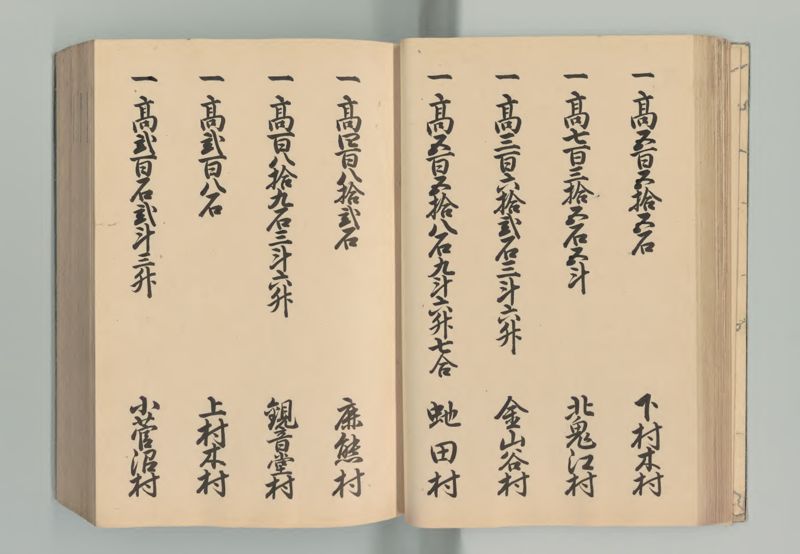 一 高五百五拾五石 下村木村
一 高七百三拾五石五斗 北鬼江村
一 高三百六拾弐石三斗六升 金山谷村
一 高五百五拾八石九斗六升七合 虵田村
一 高四百八拾弐石 鹿熊村
一 高百八拾九石三斗六升 観音堂村
一 高弐百八石 上村木村
一 高弐百石弐斗三升 小菅沼村